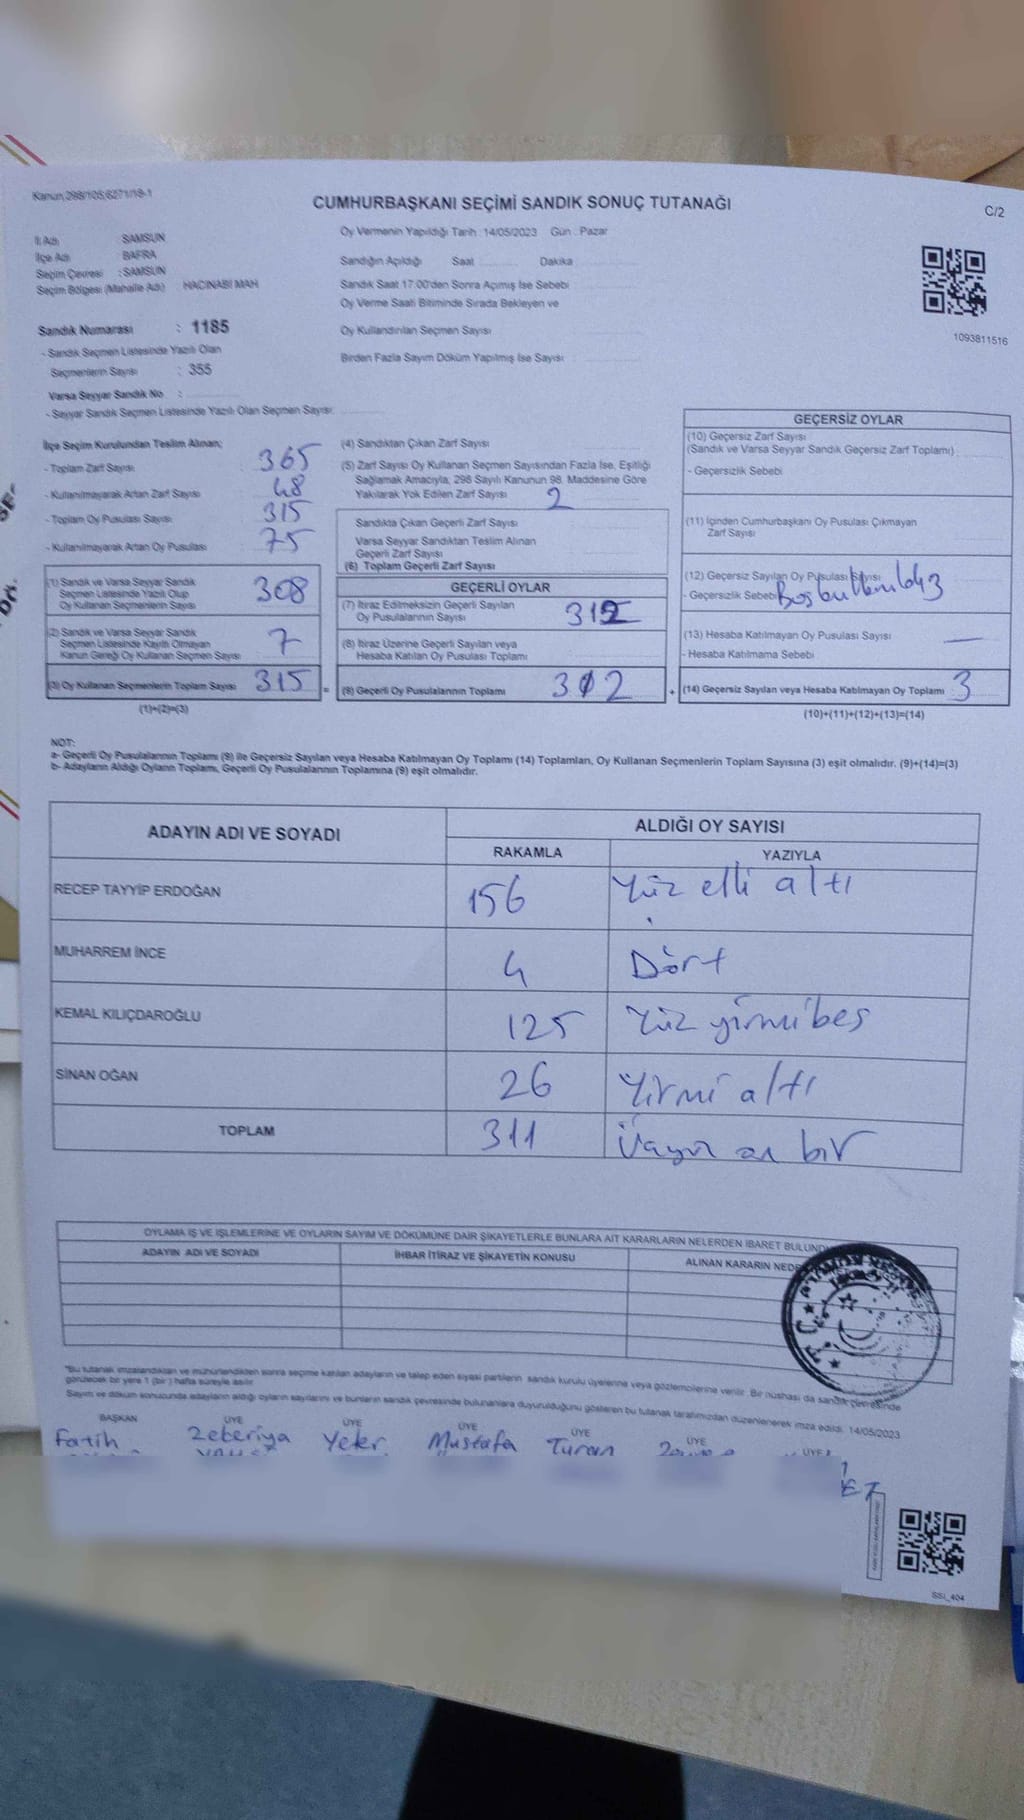 Kanun 298/105/6271/18-1
CUMHURBAŞKANI SEÇİMİ SANDIK SONUÇ TUTANAĞI
C/2
İl Adı : SAMSUN
İlçe Adı : BAFRA
Seçim Çevresi : SAMSUN
Seçim Bölgesi (Mahalle Adı) HACINABİ MAH
Sandık Numarası : 1185
- Sandık Seçmen Listesinde Yazılı Olan
Seçmenlerin Sayısı : 355
Varsa Seyyar Sandık No :
- Seyyar Sandık Seçmen Listesinde Yazılı Olan Seçmen Sayısı:
Oy Vermenin Yapıldığı Tarih : 14/05/2023 Gün : Pazar
Sandığın Açıldığı Saat Dakika
Sandık Saat 17:00'den Sonra Açımış İse Sebebi
Oy Verme Saati Bitiminde Sırada Bekleyen ve
Oy Kullandırılan Seçmen Sayısı
Birden Fazla Sayım Döküm Yapılmış İse Sayısı :
1093811516
İlçe Seçim Kurulundan Teslim Alınan;
- Toplam Zarf Sayısı 365
- Kullanılmayarak Artan Zarf Sayısı 48
- Toplam Oy Pusulası Sayısı 315
- Kullanılmayarak Artan Oy Pusulası 75
(1) Sandık ve Varsa Seyyar Sandık
Seçmen Listesinde Yazılı Olup
Oy Kullanan Seçmenlerin Sayısı 308
(2) Sandık ve Varsa Seyyar Sandık
Seçmen Listesinde Kayıtlı Olmayan
Kanun Gereği Oy Kullanan Seçmen Sayısı 7
(3) Oy Kullanan Seçmenlerin Toplam Sayısı 315 =
(1)+(2)=(3)
(4) Sandıktan Çıkan Zarf Sayısı
(5) Zarf Sayısı Oy Kullanan Seçmen Sayısından Fazla İse, Eşitliği
Sağlamak Amacıyla, 298 Sayılı Kanunun 98. Maddesine Göre
Yakılarak Yok Edilen Zarf Sayısı 2
Sandıkta Çıkan Geçerli Zarf Sayısı
Varsa Seyyar Sandıktan Teslim Alınan
Geçerli Zarf Sayısı
(6) Toplam Geçerli Zarf Sayısı
GEÇERLİ OYLAR
(7) İtiraz Edilmeksizin Geçerli Sayılan
Oy Pusulalarının Sayısı 312
(8) İtiraz Üzerine Geçerli Sayılan veya
Hesaba Katılan Oy Pusulası Toplamı
(9) Geçerli Oy Pusulalarının Toplamı 312 +
GEÇERSİZ OYLAR
(10) Geçersiz Zarf Sayısı
(Sandık ve Varsa Seyyar Sandık Geçersiz Zarf Toplamı)
- Geçersizlik Sebebi
(11) İçinden Cumhurbaşkanı Oy Pusulası Çıkmayan
Zarf Sayısı
(12) Geçersiz Sayılan Oy Pusulası Sayısı
- Geçersizlik Sebebi 3
(13) Hesaba Katılmayan Oy Pusulası Sayısı —
- Hesaba Katılmama Sebebi
(14) Geçersiz Sayılan veya Hesaba Katılmayan Oy Toplamı 3
(10)+(11)+(12)+(13)=(14)
NOT:
a- Geçerli Oy Pusulalarının Toplamı (9) ile Geçersiz Sayılan veya Hesaba Katılmayan Oy Toplamı (14) Toplamları, Oy Kullanan Seçmenlerin Toplam Sayısına (3) eşit olmalıdır. (9)+(14)=(3)
b- Adayların Aldığı Oyların Toplamı, Geçerli Oy Pusulalarının Toplamına (9) eşit olmalıdır.
ADAYIN ADI VE SOYADI ALDIĞI OY SAYISI
RAKAMLA YAZIYLA
RECEP TAYYİP ERDOĞAN 156 Yüz elli altı
MUHARREM İNCE 4 Dört
KEMAL KILIÇDAROĞLU 125 Yüz yirmi beş
SİNAN OĞAN 26 Yirmi altı
TOPLAM 311 bir
OYLAMA İŞ VE İŞLEMLERİNE VE OYLARIN SAYIM VE DÖKÜMÜNE DAİR ŞİKAYETLERLE BUNLARA AİT KARARLARIN NELERDEN İBARET
ADAYIN ADI VE SOYADI İHBAR İTİRAZ VE ŞİKAYETİN KONUSU ALINAN KARARIN
*Bu tutanak imzalandıktan ve mühürlendikten sonra seçime katılan adayların ve talep eden siyasi partilerin sandık kurulu üyelerine veya gözlemcilerine verilir. Bir nüshası da sandık çevresinde
görülecek bir yere 1 (bir) hafta süreyle asılır.
Sayım ve döküm sonucunda adayların aldığı oyların sayılarını ve bunların sandık çevresinde bulunanlara duyurulduğunu gösteren bu tutanak tarafımızdan düzenlenerek imza edildi. 14/05/2023
BAŞKAN ÜYE ÜYE ÜYE ÜYE ÜYE ÜYE
Fatih Zekeriya Yeter Mustafa Turan
SSI_404